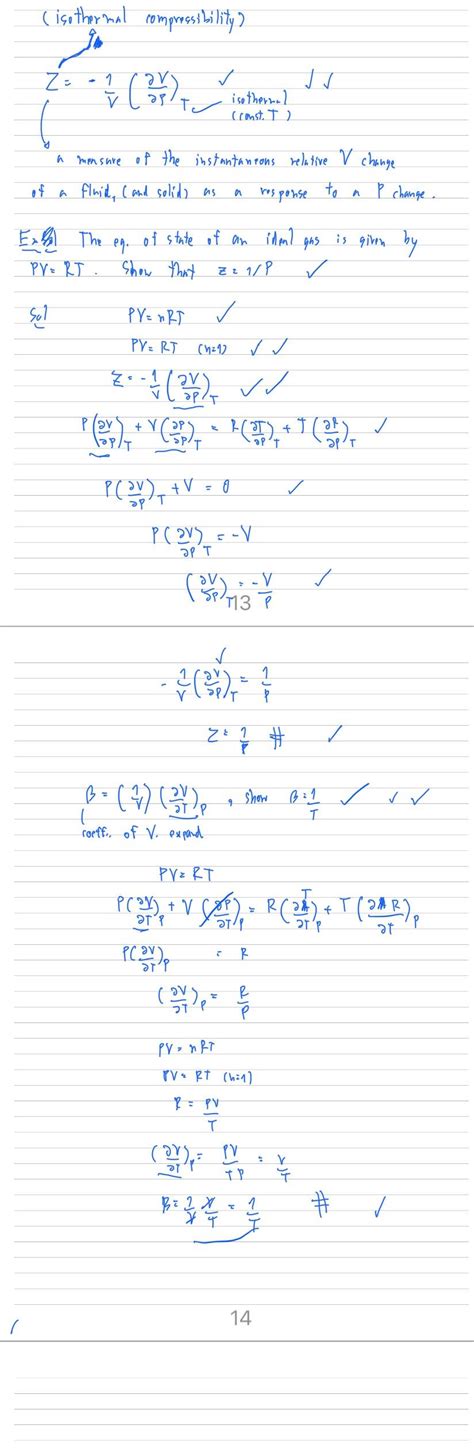 (isothermal compressibility)
Z = - 1/V (∂V/∂P)_T ✓ ✓✓
isothermal
(const. T)
a measure of the instantaneous relative V change
of a fluid, (and solid) as a response to a P change.
Ex The eq. of state of an ideal gas is given by
PV = RT. Show that Z = 1/P ✓
Sol PV = nRT ✓
PV = RT (n=1) ✓ ✓
Z = - 1/V (∂V/∂P)_T ✓✓
P(∂V/∂P)_T + V(∂P/∂P)_T = R(∂T/∂P)_T + T(∂R/∂P)_T ✓
P(∂V/∂P)_T + V = 0 ✓
P(∂V/∂P)_T = -V
(∂V/∂P)_T = -V/P ✓
13
✓
- 1/V (∂V/∂P)_T = 1/P
Z = 1/P # ✓
B = (1/V) (∂V/∂T)_P , show B = 1/T ✓ ✓ ✓
coeff. of V. expand
PV = RT
P(∂V/∂T)_P + V(∂P/∂T)_P = R(∂T/∂T)_P + T(∂R/∂T)_P
P(∂V/∂T)_P = R
(∂V/∂T)_P = R/P
PV = nRT
PV = RT (n=1)
R = PV/T
(∂V/∂T)_P = PV/TP = V/T
B = 1/V V/T = 1/T # ✓
14